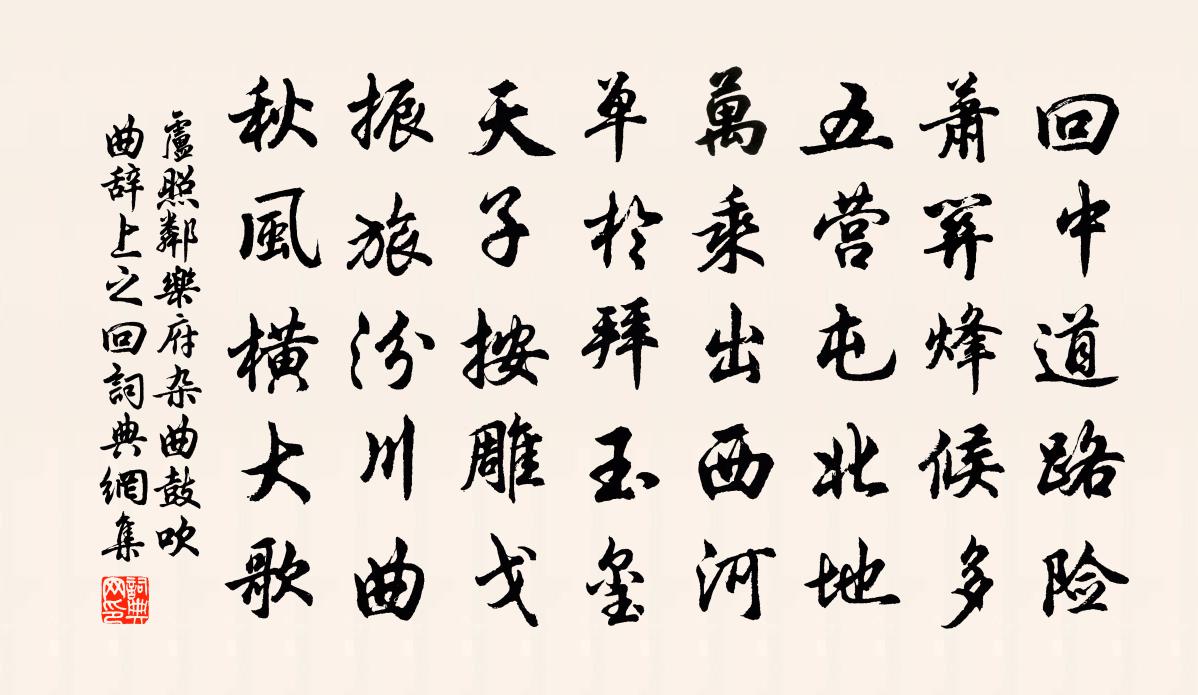 回中道路险
萧关烽候多
五营屯北地
萬乘出西河
单於拜玉玺
天子按雕戈
振旅汾川曲
秋風橫大歌
盧照鄰樂府杂曲鼓吹
曲辞上之回詞典網集
詞典网印